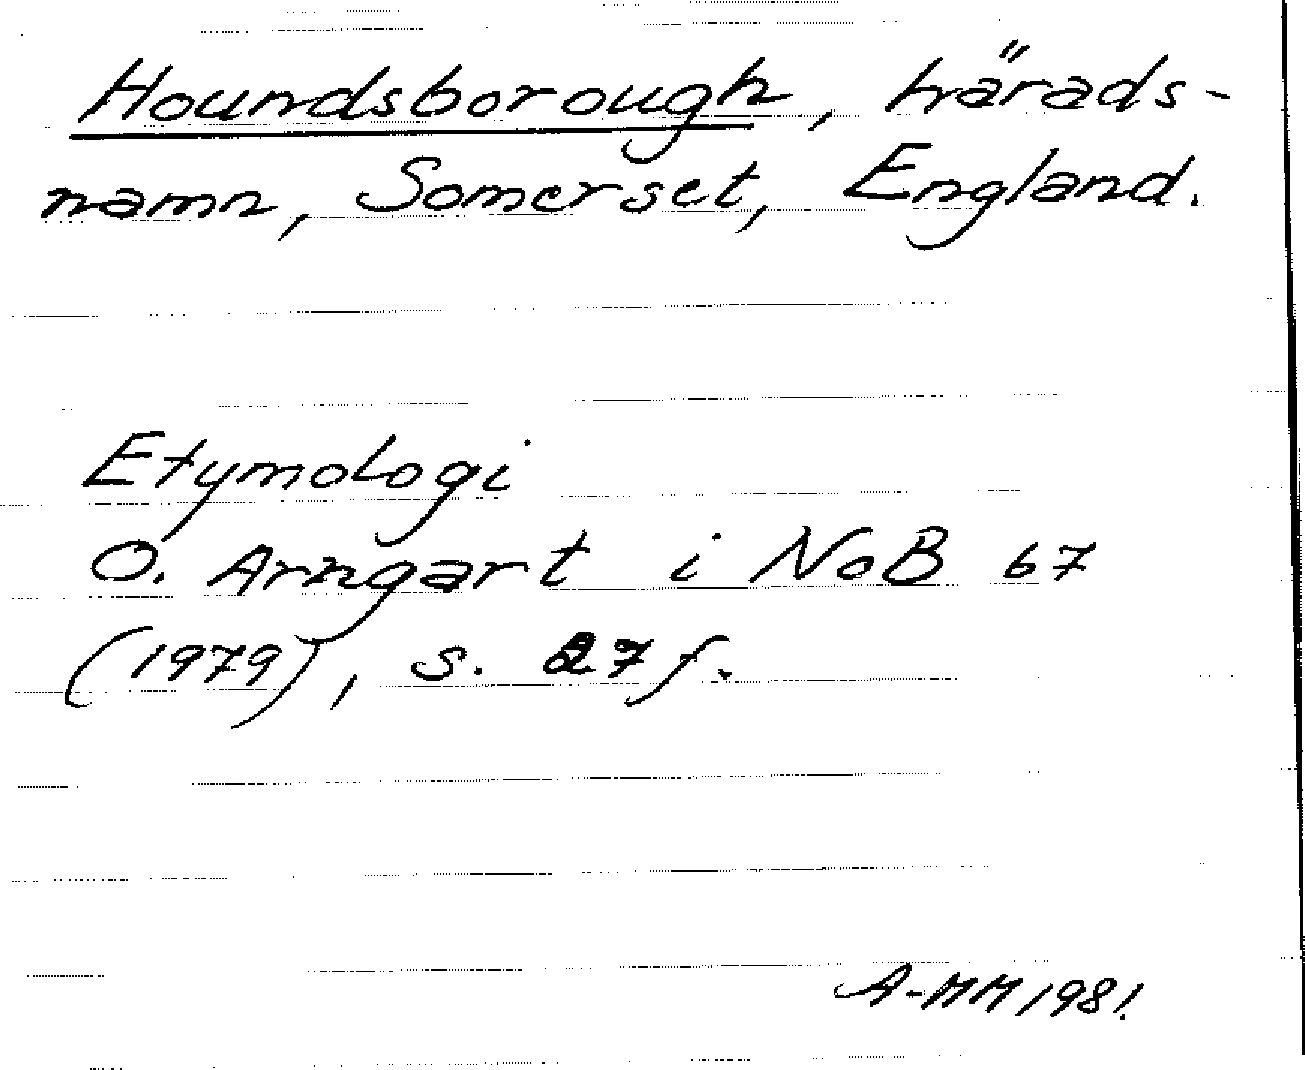 Houndsborough, härads-
namn, Somerset, England.
Etymologi
O. Arngart i NoB 67
(1979), s. 27 f.
A-MM 1981.